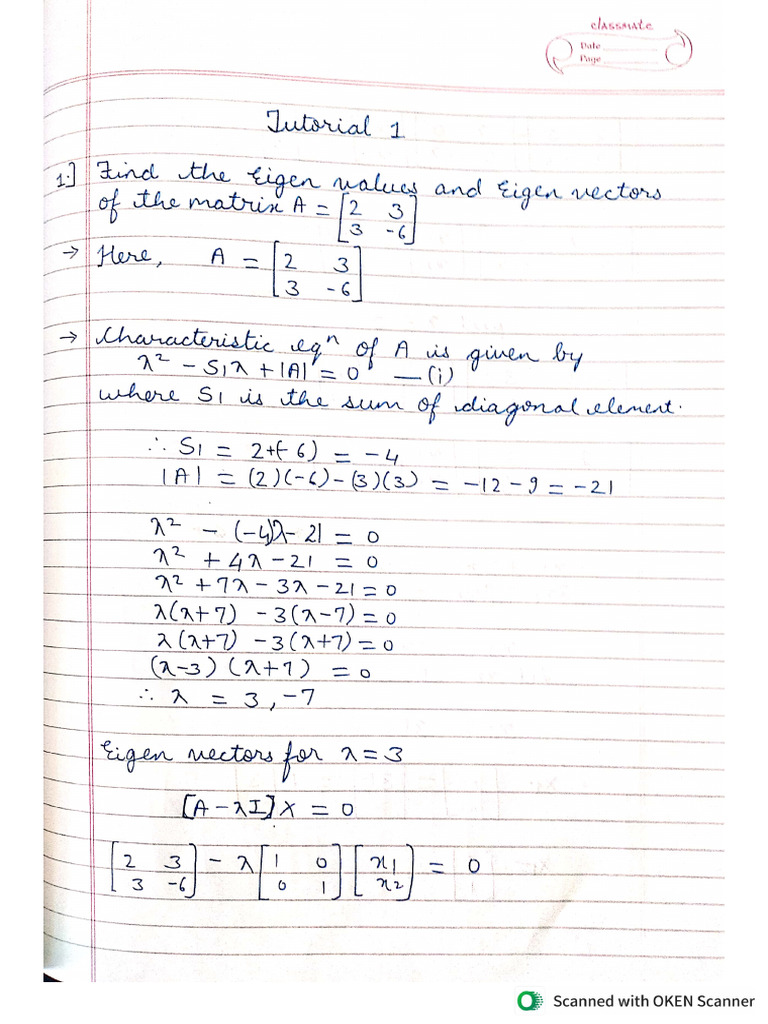 classmate
Date
Page
Tutorial 1
1.] Find the Eigen values and Eigen vectors
of the matrix A = [2 3
3 -6]
→ Here, A = [2 3
3 -6]
→ Characteristic eqⁿ of A is given by
λ² - S1λ + |A| = 0 — (i)
where S1 is the sum of diagonal element.
∴ S1 = 2+(-6) = -4
|A| = (2)(-6) - (3)(3) = -12 - 9 = -21
λ² - (-4)λ - 21 = 0
λ² + 4λ - 21 = 0
λ² + 7λ - 3λ - 21 = 0
λ(λ+7) - 3(λ-7) = 0
λ(λ+7) - 3(λ+7) = 0
(λ-3) (λ+7) = 0
∴ λ = 3, -7
Eigen vectors for λ = 3
[A - λI] X = 0
[2 3 - λ [1 0 [x1 = 0
3 -6] 0 1] x2]
Scanned with OKEN Scanner